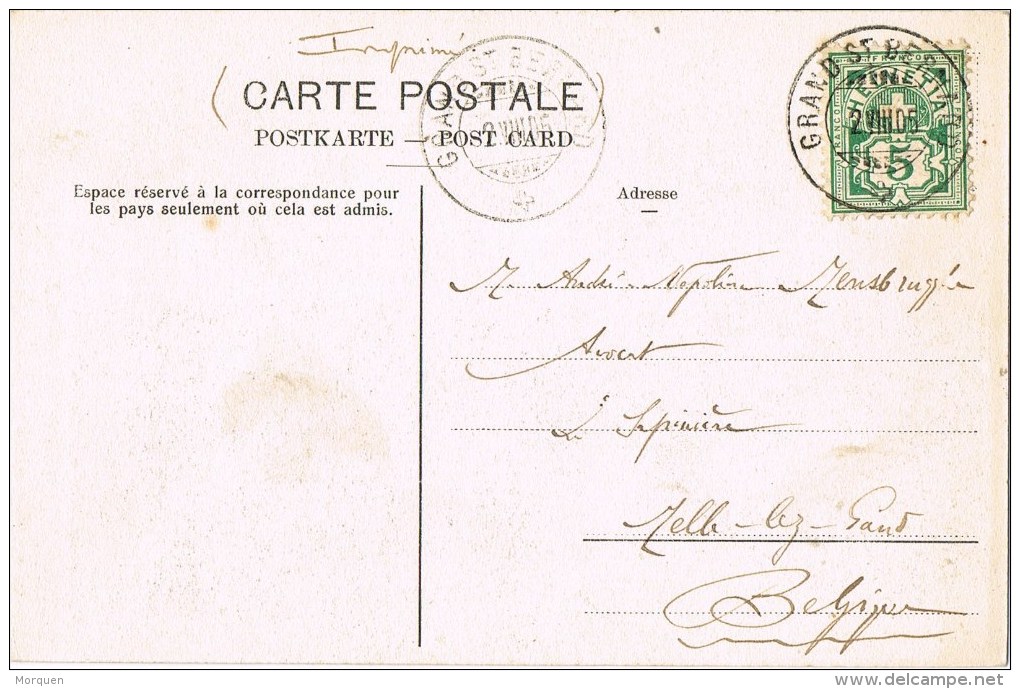 Imprimé
CARTE POSTALE
POSTKARTE – POST CARD
GRAND ST BERNARD
2.VIII.05
GRAND ST BERNARD
2.VIII.05
FRANCO
HELVETIA
5
Espace réservé à la correspondance pour
les pays seulement où cela est admis.
Adresse
M. André Mensbrugghe
Avocat
Melle-lez-Gand
Belgique
Morquen
delcampe.net